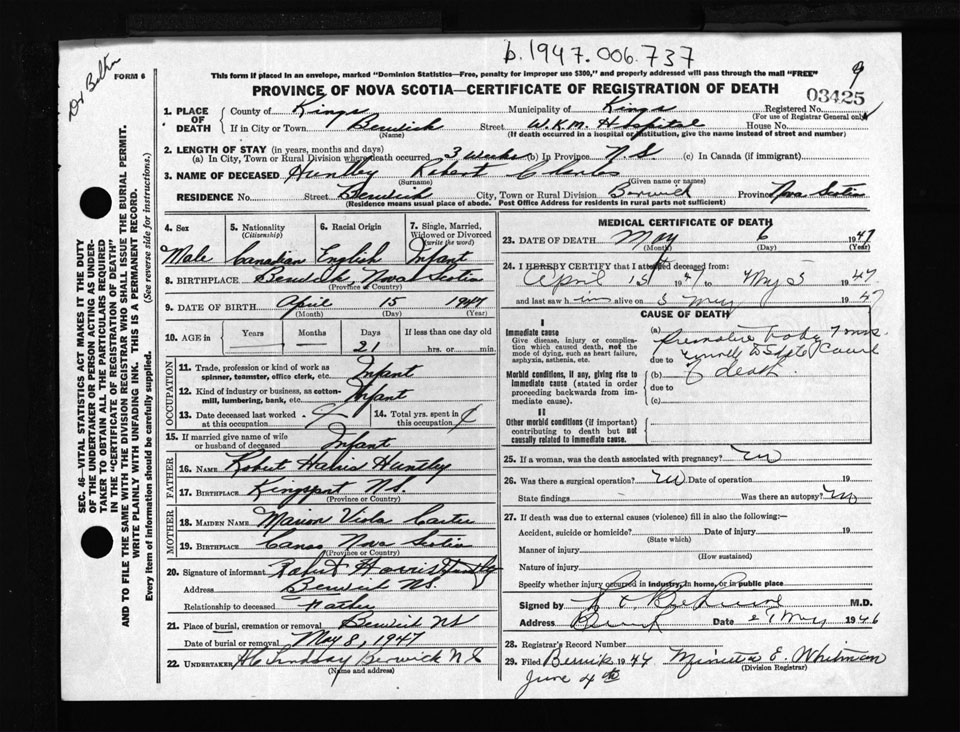 b.1947.006.737
Dr Bolton
FORM 6
This form if placed in an envelope, marked "Dominion Statistics—Free, penalty for improper use $300," and properly addressed will pass through the mail "FREE"
9
PROVINCE OF NOVA SCOTIA—CERTIFICATE OF REGISTRATION OF DEATH
03425
1. PLACE OF DEATH County of Kings Municipality of Kings Registered No.
(For use of Registrar General only)
If in City or Town Berwick Street W.K.M. Hospital House No.
(Name) (If death occurred in a hospital or institution, give the name instead of street and number)
2. LENGTH OF STAY (in years, months and days)
(a) In City, Town or Rural Division where death occurred 3 weeks (b) In Province N.S. (c) In Canada (if immigrant)
3. NAME OF DECEASED Huntley Robert Charles
(Surname) (Given name or names)
RESIDENCE No. Street Berwick City, Town or Rural Division Berwick Province Nova Scotia
(Residence means usual place of abode. Post Office Address for residents in rural parts not sufficient)
SEC. 46—VITAL STATISTICS ACT MAKES IT THE DUTY
OF THE UNDERTAKER OR PERSON ACTING AS UNDER-
TAKER TO OBTAIN ALL THE PARTICULARS REQUIRED
IN THE "CERTIFICATE OF REGISTRATION OF DEATH"
AND TO FILE THE SAME WITH THE DIVISION REGISTRAR WHO SHALL ISSUE THE BURIAL PERMIT.
WRITE PLAINLY WITH UNFADING INK. THIS IS A PERMANENT RECORD.
Every item of information should be carefully supplied. (See reverse side for instructions.)
4. Sex 5. Nationality (Citizenship) 6. Racial Origin 7. Single, Married, Widowed or Divorced (write the word)
Male Canadian English Infant
8. BIRTHPLACE Berwick, Nova Scotia
(Province or Country)
9. DATE OF BIRTH April 15 1947
(Month) (Day) (Year)
10. AGE in Years Months Days If less than one day old
21 hrs. or min.
OCCUPATION
11. Trade, profession or kind of work as spinner, teamster, office clerk, etc. Infant
12. Kind of industry or business, as cotton-mill, lumbering, bank, etc. Infant
13. Date deceased last worked at this occupation 14. Total yrs. spent in this occupation
15. If married give name of wife or husband of deceased Infant
FATHER
16. NAME Robert Harris Huntley
17. BIRTHPLACE Kingsport N.S.
(Province or Country)
MOTHER
18. MAIDEN NAME Marion Viola Carter
19. BIRTHPLACE Canso Nova Scotia
(Province or Country)
20. Signature of informant Robert Harris Huntley
Address Berwick N.S.
Relationship to deceased Father
21. Place of burial, cremation or removal Berwick NS
Date of burial or removal May 8, 1947
22. UNDERTAKER Lindsay Berwick N S
(Name and address)
MEDICAL CERTIFICATE OF DEATH
23. DATE OF DEATH May 6 1947
(Month) (Day) (Year)
24. I HEREBY CERTIFY that I attended deceased from:
April 15 1947 to May 5 1947
and last saw him alive on 5 May 1947
CAUSE OF DEATH
I
Immediate cause
Give disease, injury or complication which caused death, not the mode of dying, such as heart failure, asphyxia, asthenia, etc.
(a) Premature baby 7 mos.
due to
Morbid conditions, if any, giving rise to immediate cause (stated in order proceeding backwards from immediate cause).
(b) of death.
due to
(c)
II
Other morbid conditions (if important) contributing to death but not causally related to immediate cause.
25. If a woman, was the death associated with pregnancy? no
26. Was there a surgical operation? no Date of operation 19
State findings Was there an autopsy? no
27. If death was due to external causes (violence) fill in also the following:—
Accident, suicide or homicide? Date of injury 19
(State which)
Manner of injury
(How sustained)
Nature of injury
Specify whether injury occurred in industry, in home, or in public place
Signed by M.D.
Address Date May 1946
28. Registrar's Record Number
29. Filed Berwick 1947 E. Whitman
(Division Registrar)
June 4th